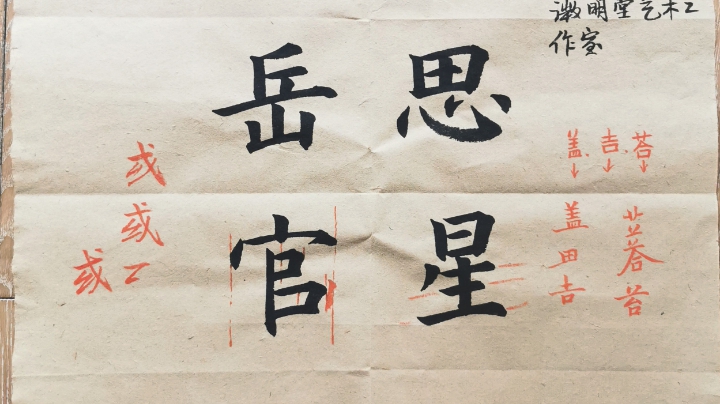 澂明堂艺术工
作室
思
星
岳
官
荅
吉
盖
荅
苔
盖
田
吉
或
或
或